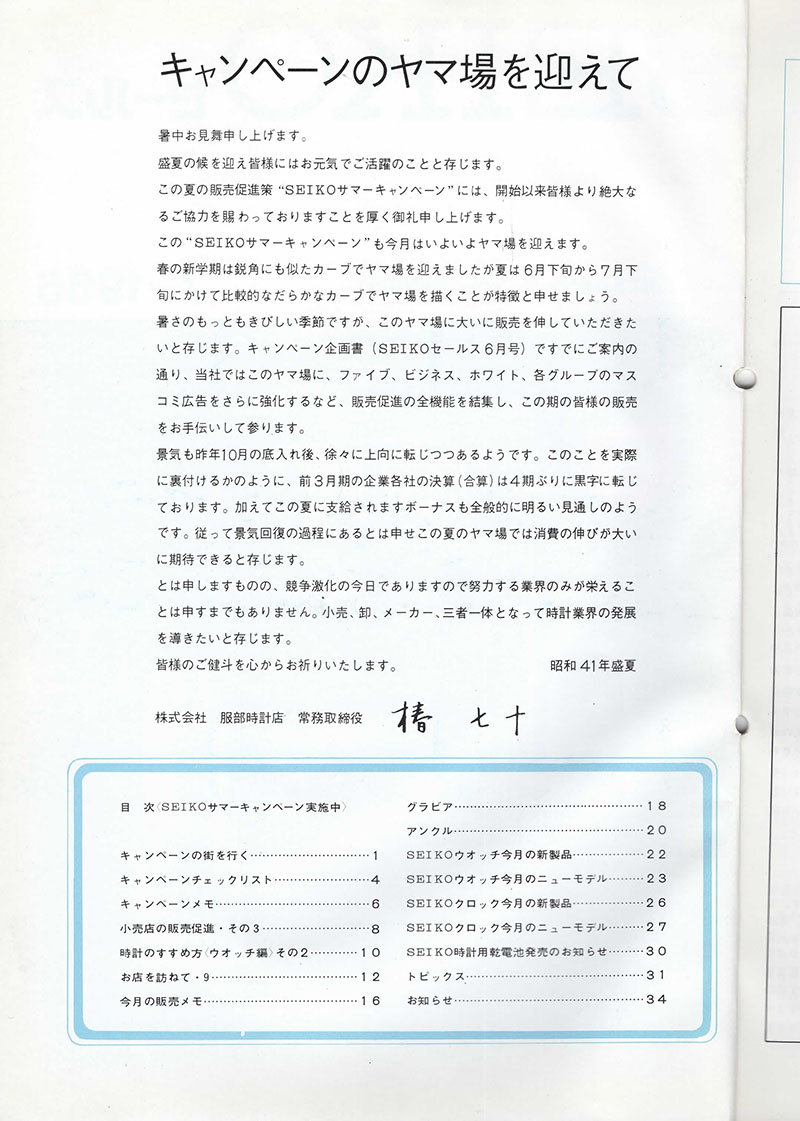 キャンペーンのヤマ場を迎えて
暑中お見舞申し上げます。
盛夏の候を迎え皆様にはお元気でご活躍のことと存じます。
この夏の販売促進策“SEIKOサマーキャンペーン”には、開始以来皆様より絶大な
るご協力を賜わっておりますことを厚く御礼申し上げます。
この“SEIKOサマーキャンペーン”も今月はいよいよヤマ場を迎えます。
春の新学期は鋭角にも似たカーブでヤマ場を迎えましたが夏は6月下旬から7月下
旬にかけて比較的なだらかなカーブでヤマ場を描くことが特徴と申せましょう。
暑さのもっともきびしい季節ですが、このヤマ場に大いに販売を伸していただきた
いと存じます。キャンペーン企画書（SEIKOセールス6月号）ですでにご案内の
通り、当社ではこのヤマ場に、ファイブ、ビジネス、ホワイト、各グループのマス
コミ広告をさらに強化するなど、販売促進の全機能を結集し、この期の皆様の販売
をお手伝いして参ります。
景気も昨年10月の底入れ後、徐々に上向に転じつつあるようです。このことを実際
に裏付けるかのように、前3月期の企業各社の決算（合算）は4期ぶりに黒字に転じ
ております。加えてこの夏に支給されますボーナスも全般的に明るい見通しのよう
です。従って景気回復の過程にあるとは申せこの夏のヤマ場では消費の伸びが大い
に期待できると存じます。
とは申しますものの、競争激化の今日でありますので努力する業界のみが栄えるこ
とは申すまでもありません。小売、卸、メーカー、三者一体となって時計業界の発展
を導きたいと存じます。
皆様のご健斗を心からお祈りいたします。 昭和41年盛夏
株式会社 服部時計店 常務取締役 椿 七十
目 次〈SEIKOサマーキャンペーン実施中〉
キャンペーンの街を行く…………………………1
キャンペーンチェックリスト……………………4
キャンペーンメモ…………………………………6
小売店の販売促進・その3………………………8
時計のすすめ方〈ウオッチ編〉その2…………10
お店を訪ねて・9…………………………………12
今月の販売メモ…………………………………16
グラビア…………………………………………18
アンクル…………………………………………20
SEIKOウオッチ今月の新製品………………22
SEIKOウオッチ今月のニューモデル………23
SEIKOクロック今月の新製品………………26
SEIKOクロック今月のニューモデル………27
SEIKO時計用乾電池発売のお知らせ………30
トピックス………………………………………31
お知らせ…………………………………………34